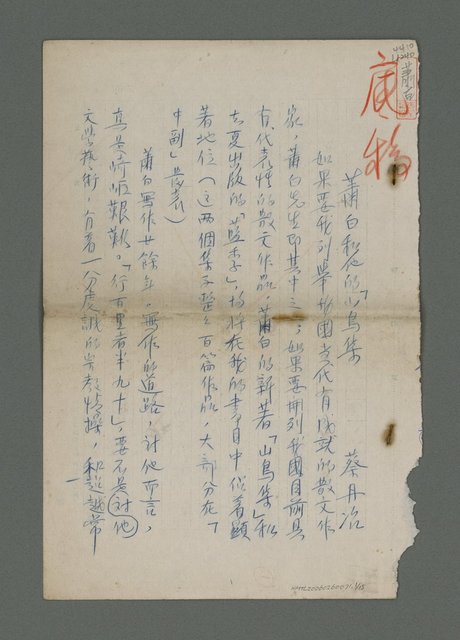 底稿
蕭白
蕭白和他的「山鳥集」　蔡丹冶
如果要我列舉我國當代有成就的散文作
家，蕭白先生即其中之一；如果要開列我國目前具
有代表性的散文作品，蕭白的新著「山鳥集」和
去夏出版的「藍季」，均將在我的書目中佔着顯
著地位（這兩個集子整整百篇作品，大部分在「
中副」發表）
蕭白寫作廿餘年。寫作的道路，對他而言，
真是崎嶇艱難。「行百里者半九十」，要不是對他
文學藝術，有着一分虔誠的崇敬情操，和超越常
NMTL20000260071 1/15